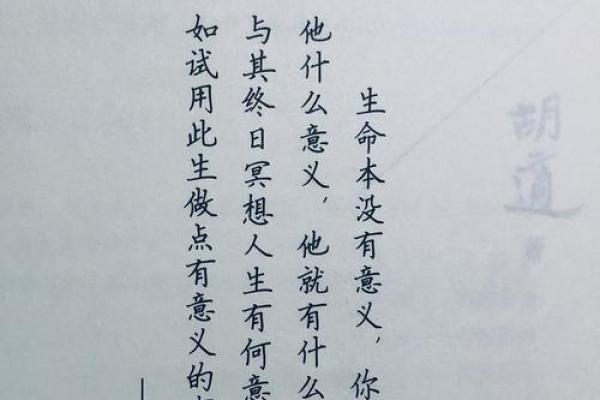 生命本没有意义，你
他什么意义，他就有什么
与其终日冥想人生有何意
如试用此生做点有意义的
胡道